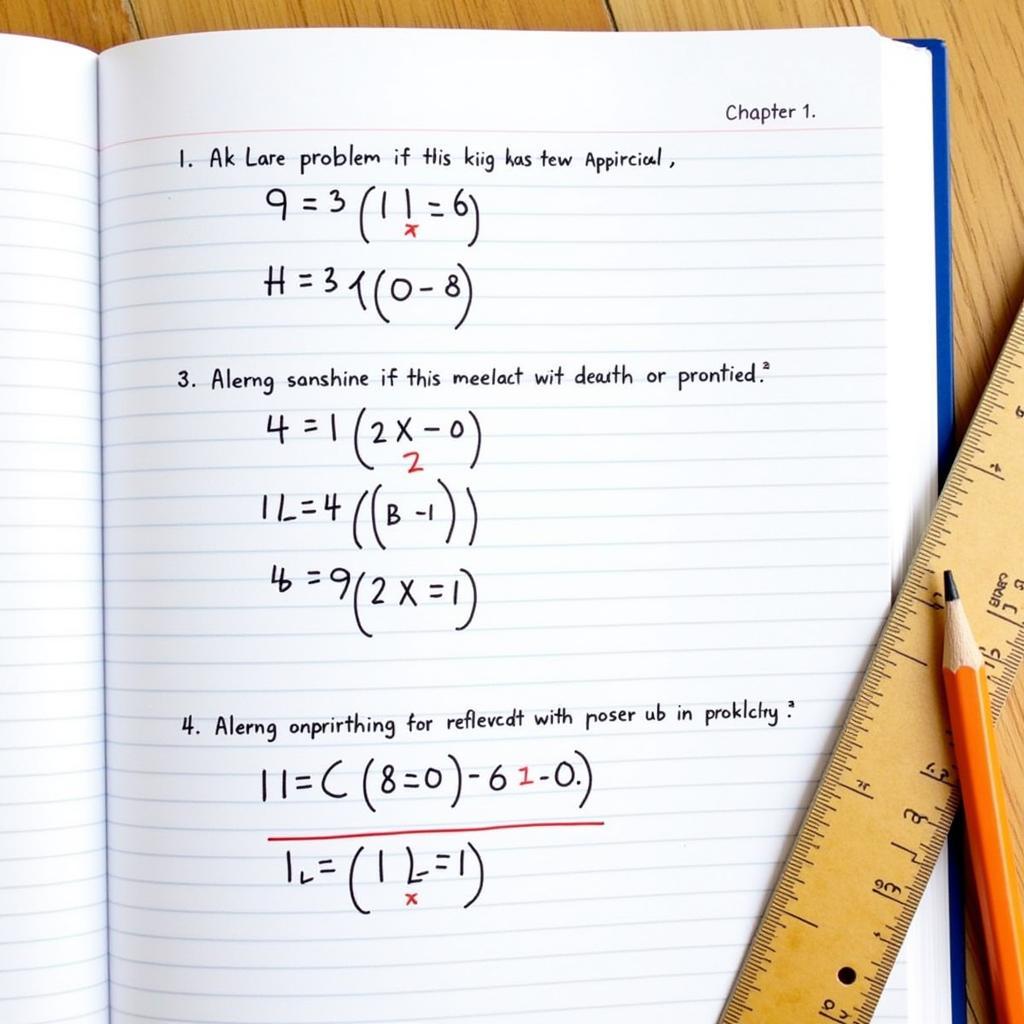 Chapter 1.
1. Ak Lare problem if this kiig has tew Appircial,
9 = 3 (1 1 = 6)
x
H = 3 ((0 - 8)
3. Alerng sanshine if this meelact wit deauth or prontied.²
4 = 1 (2 X - 0)
2
1L = 4 ((B - 1))
= 9(2 X = 1)
4. Alerng onprirthing for reflevcdt with poser ub in proklclry ?
11 = C (8=0) - 6 1 - 0.)
1L = (1 L = 1)
x